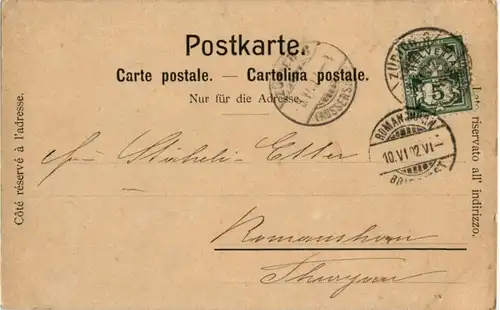 Postkarte.
Carte postale. — Cartolina postale.
Nur für die Adresse.
Côté réservé à l'adresse.
Lato riservato all' indirizzo.
ZÜRICH
HELVETIA
5
(AUSSERSIHL)
ROMANSHORN
10.VI.02.VI–
BRIEF
Stäheli-Etter
Romanshorn
Thurgau